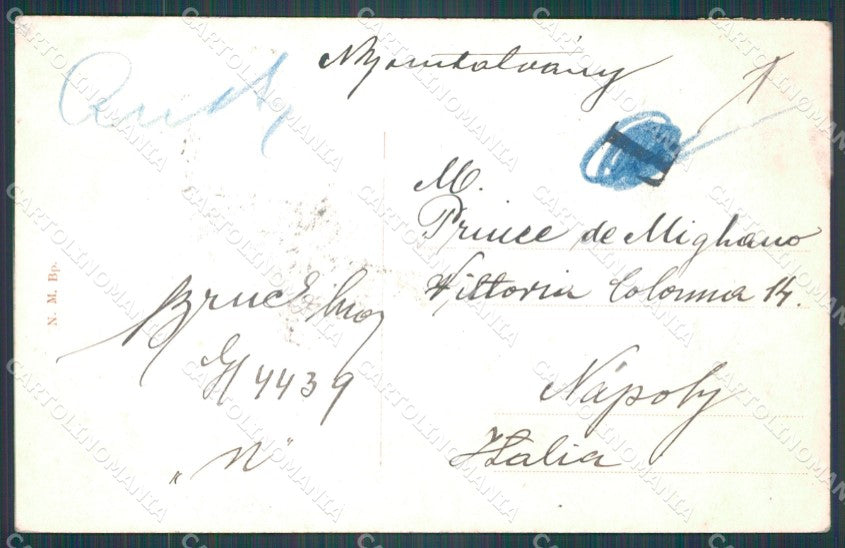 Nyomtatvány
T
M.
Prince de Migliano
Vittoria Colonna 14.
Nápoly
Italia
G/4439
„N"
N. M. Bp.
CARTOLINOMANIA